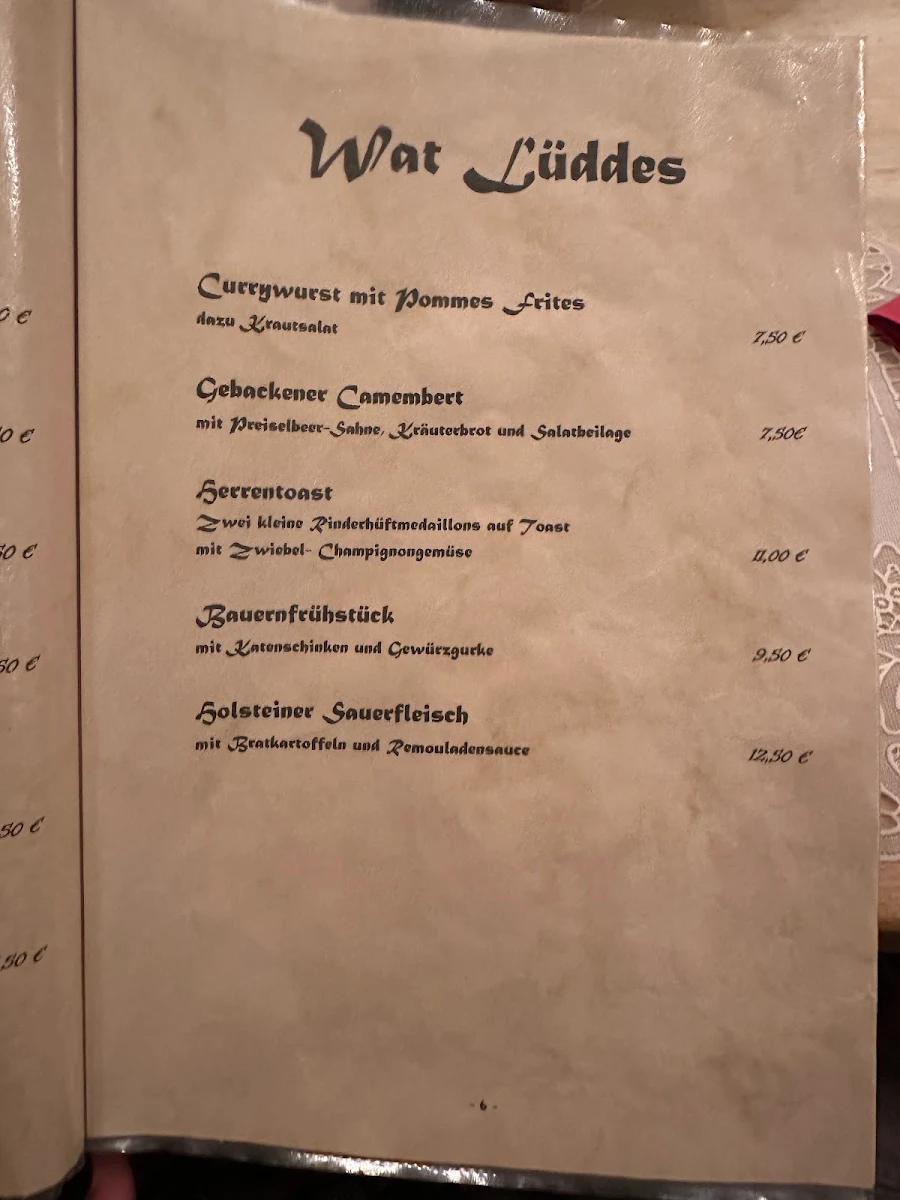 Wat Lüddes
Currywurst mit Pommes Frites
dazu Krautsalat
7,50 €
Gebackener Camembert
mit Preiselbeer-Sahne, Kräuterbrot und Salatbeilage
7,50€
Herrentoast
Zwei kleine Rinderhüftmedaillons auf Toast
mit Zwiebel- Champignongemüse
11,00 €
Bauernfrühstück
mit Katenschinken und Gewürzgurke
9,50 €
Holsteiner Sauerfleisch
mit Bratkartoffeln und Remouladensauce
12,50 €
- 6 -